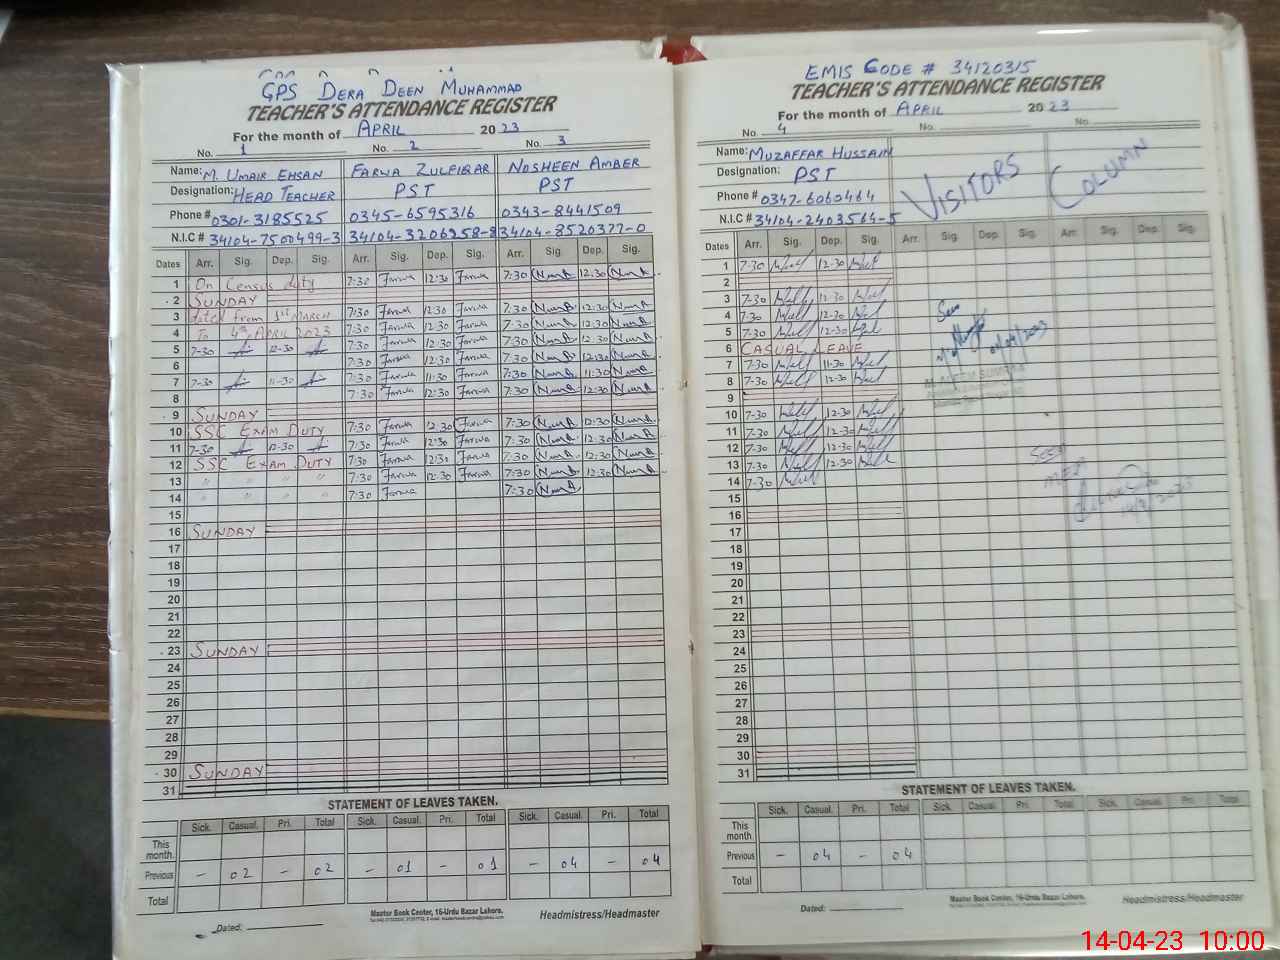 GPS DERA DEEN MUHAMMAD
TEACHER'S ATTENDANCE REGISTER
For the month of APRIL 20 23
No. 1 No. 2 No. 3
Name: M. UMAIR EHSAN FARWA ZULFIQAR NOSHEEN AMBER
Designation: HEAD TEACHER PST PST
Phone # 0301-3185525 0345-6595316 0343-8441509
N.I.C # 34104-7500499-3 34104-3206258-8 34104-8520377-0
Dates Arr. Sig. Dep. Sig. Arr. Sig. Dep. Sig. Arr. Sig. Dep. Sig.
1 On Census duty 7:30 Farwa 12:30 Farwa 7:30 12:30
2 SUNDAY
3 dated from 1st MARCH 7:30 Farwa 12:30 Farwa 7:30 12:30
4 To 4th APRIL 2023 7:30 Farwa 12:30 Farwa 7:30 12:30
5 7-30 12-30 7:30 Farwa 12:30 Farwa 7:30 12:30
6 7:30 Farwa 12:30 Farwa 7:30 12:30
7 7-30 11-30 7:30 Farwa 11:30 Farwa 7:30 11:30
8 7:30 Farwa 12:30 Farwa 7:30 12:30
9 SUNDAY
10 SSC EXAM DUTY 7:30 Farwa 12:30 Farwa 7:30 12:30
11 7-30 12-30 7:30 Farwa 12:30 Farwa 7:30 12:30
12 SSC EXAM DUTY 7:30 Farwa 12:30 Farwa 7:30 12:30
13 " " " " 7:30 Farwa 12:30 Farwa 7:30 12:30
14 " " " " 7:30 Farwa 7:30
15
16 SUNDAY
17
18
19
20
21
22
23 SUNDAY
24
25
26
27
28
29
30 SUNDAY
31
STATEMENT OF LEAVES TAKEN.
Sick. Casual. Pri. Total Sick. Casual. Pri. Total Sick. Casual. Pri. Total
This month.
Previous - 02 - 02 - 01 - 01 - 04 - 04
Total
Master Book Center, 16-Urdu Bazar Lahore.
Headmistress/Headmaster
Dated:
EMIS CODE # 34120315
TEACHER'S ATTENDANCE REGISTER
For the month of APRIL 20 23
No. 4 No. No.
Name: MUZAFFAR HUSSAIN
Designation: PST
Phone # 0347-6060464
N.I.C # 34104-2403564-5
VISITORS COLUMN
Dates Arr. Sig. Dep. Sig. Arr. Sig. Dep. Sig. Arr. Sig. Dep. Sig.
1 7-30 12-30
2
3 7-30 12-30
4 7-30 12-30
5 7-30 12-30
6 CASUAL LEAVE
7 7-30 11-30
8 7-30 12-30
9
10 7-30 12-30
11 7-30 12-30
12 7-30 12-30
13 7-30 12-30
14 7-30
15
16
17
18
19
20
21
22
23
24
25
26
27
28
29
30
31
Seen
STATEMENT OF LEAVES TAKEN.
Sick. Casual. Pri. Total Sick. Casual. Pri. Total Sick. Casual. Pri. Total
This month.
Previous - 04 - 04
Total
Dated:
Master Book Center, 16-Urdu Bazar Lahore.
Headmistress/Headmaster
14-04-23 10:00